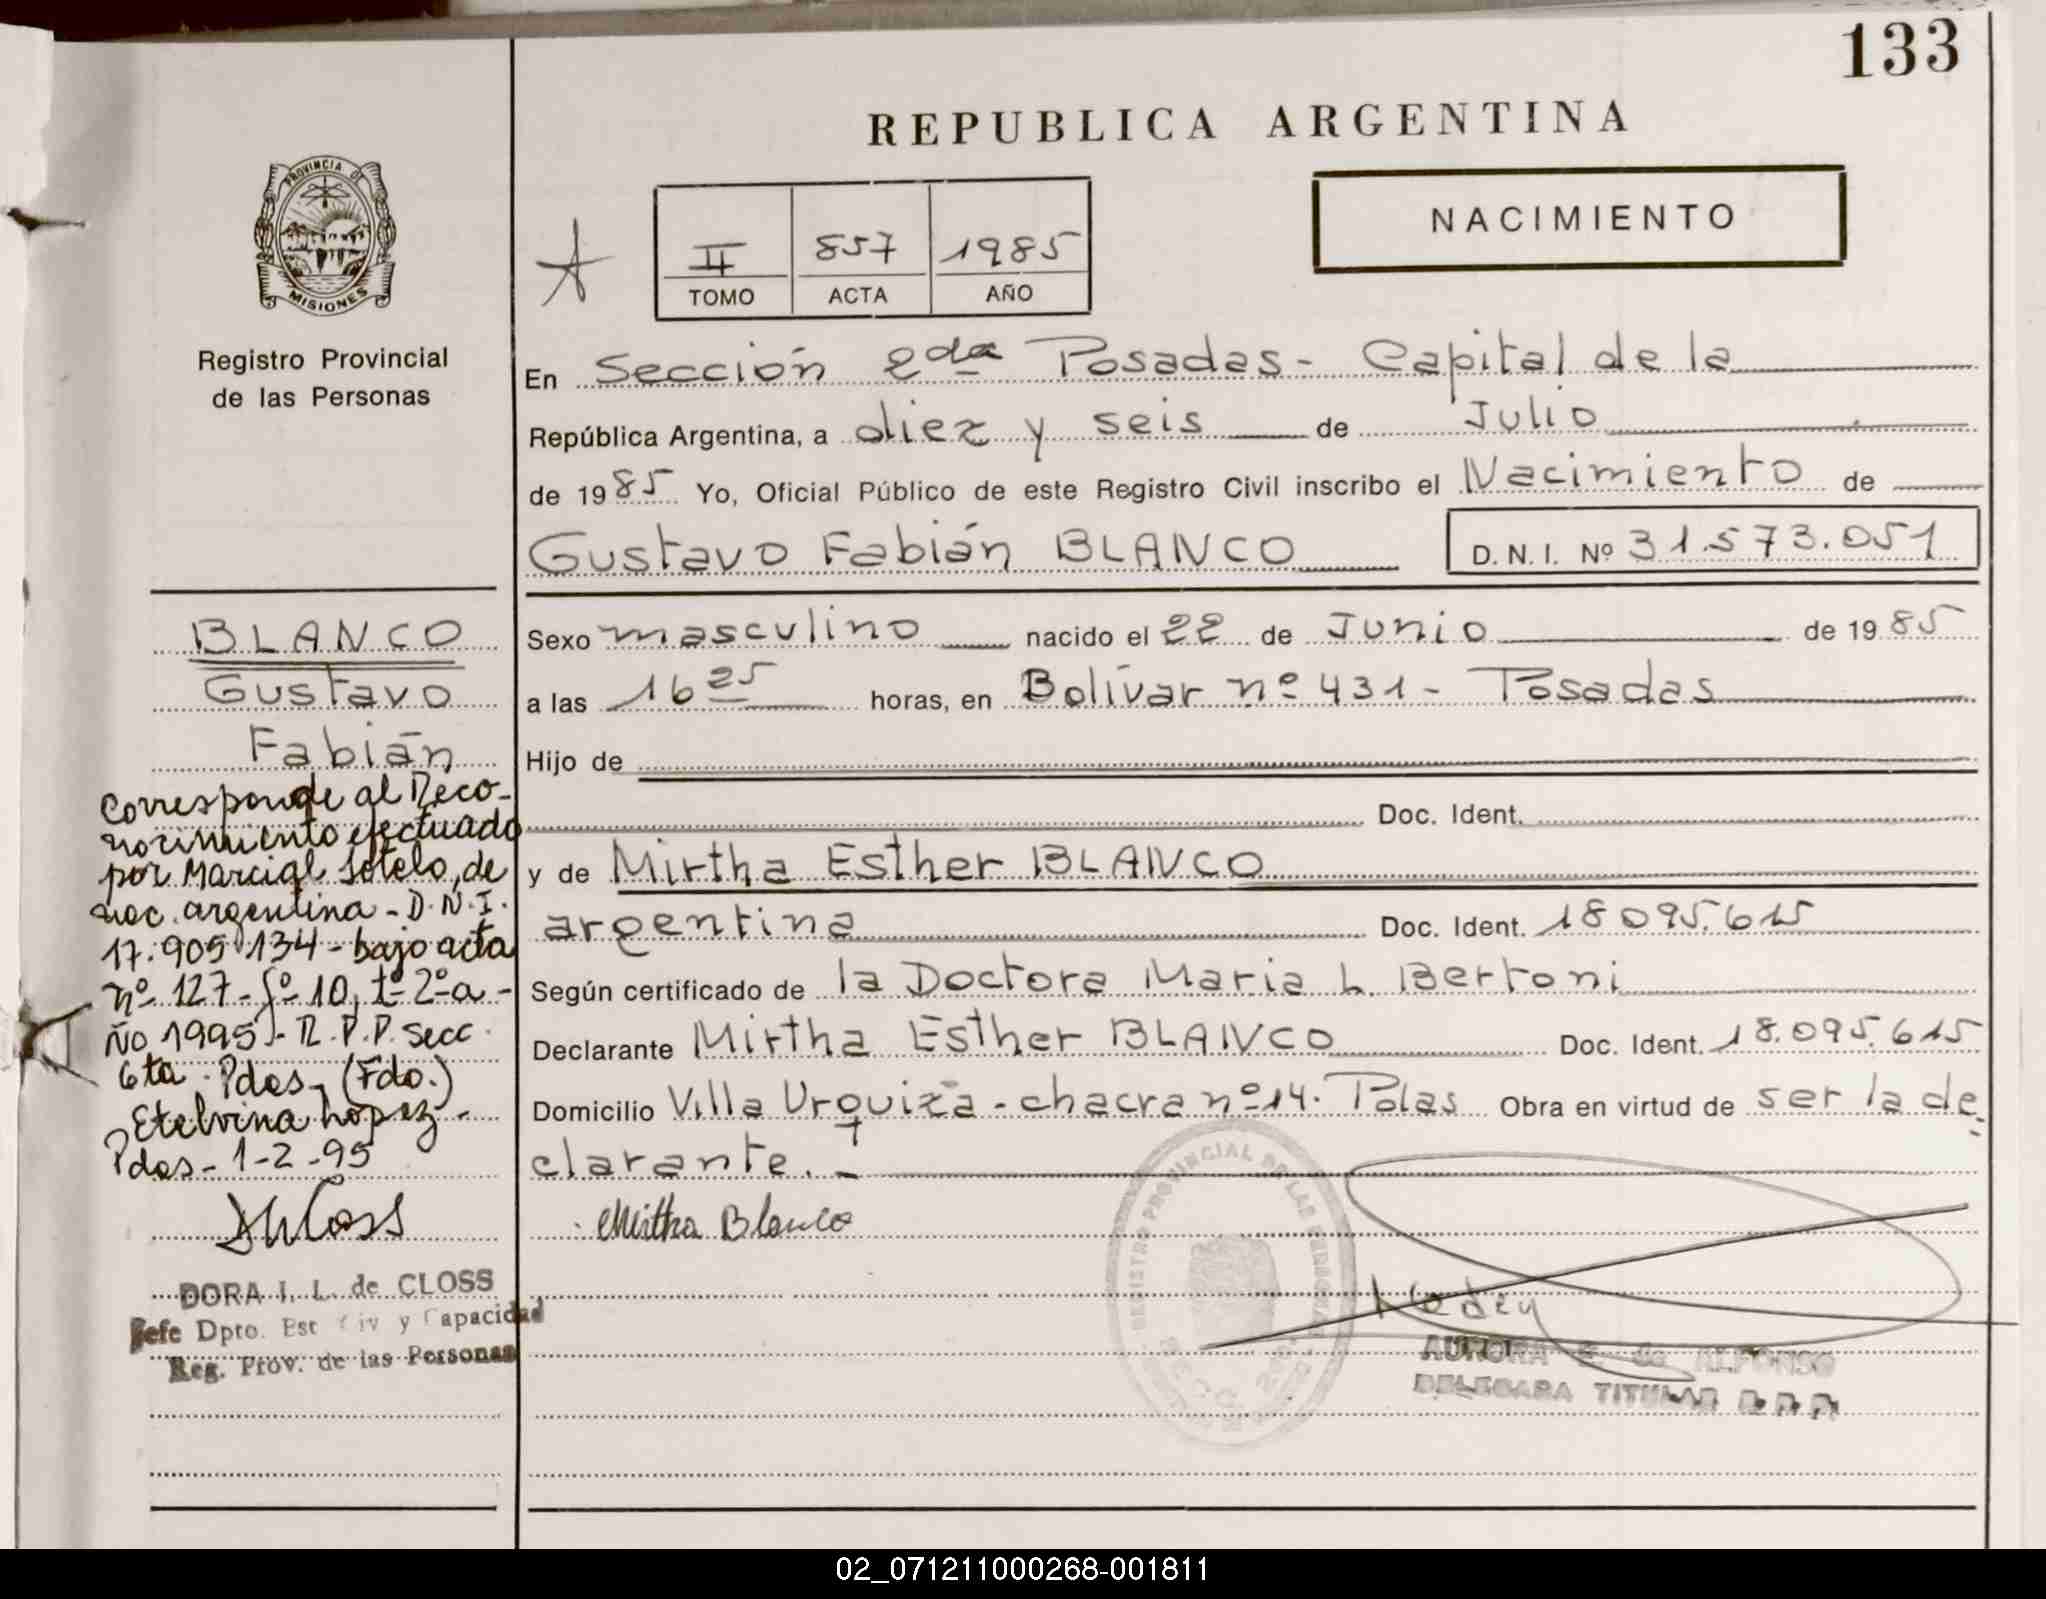 133
REPUBLICA ARGENTINA
NACIMIENTO
PROVINCIA DE
MISIONES
II 857 1985
TOMO ACTA AÑO
Registro Provincial
de las Personas
En Sección 2da Posadas - Capital de la
República Argentina, a diez y seis de Julio
de 1985 Yo, Oficial Público de este Registro Civil inscribo el Nacimiento de
Gustavo Fabián BLANCO D.N.I. Nº 31.573.051
Sexo masculino nacido el 22 de Junio de 1985
a las 16 25 horas, en Bolívar nº 431 - Posadas
Hijo de
Doc. Ident.
y de Mirtha Esther BLANCO
argentina Doc. Ident. 18.095.615
Según certificado de la Doctora Maria L. Bertoni
Declarante Mirtha Esther BLANCO Doc. Ident. 18.095.615
Domicilio Villa Urquiza - chacra nº 14. Pdas Obra en virtud de ser la de
clarante. -
Mirtha Blanco
BLANCO
Gustavo
Fabián
Corresponde al Reco-
nocimiento efectuado
por Marcial Sotelo, de
nac. argentina - D.N.I.
17.905.134 - bajo acta
nº 127 - fº 10, tº 2º a -
ño 1995 - R.P.P. Secc.
6ta. Pdas - (Fdo.)
Etelvina Lopez -
Pdas - 1-2-95
DORA I. L. de CLOSS
Jefe Dpto. Est. Civ y Capacidad
Reg. Prov. de las Personas
REGISTRO PROVINCIAL DE LAS PERSONAS
SECC. 2da
AURORA E. de ALFONSO
DELEGADA TITULAR R.P.P.
02_071211000268-001811